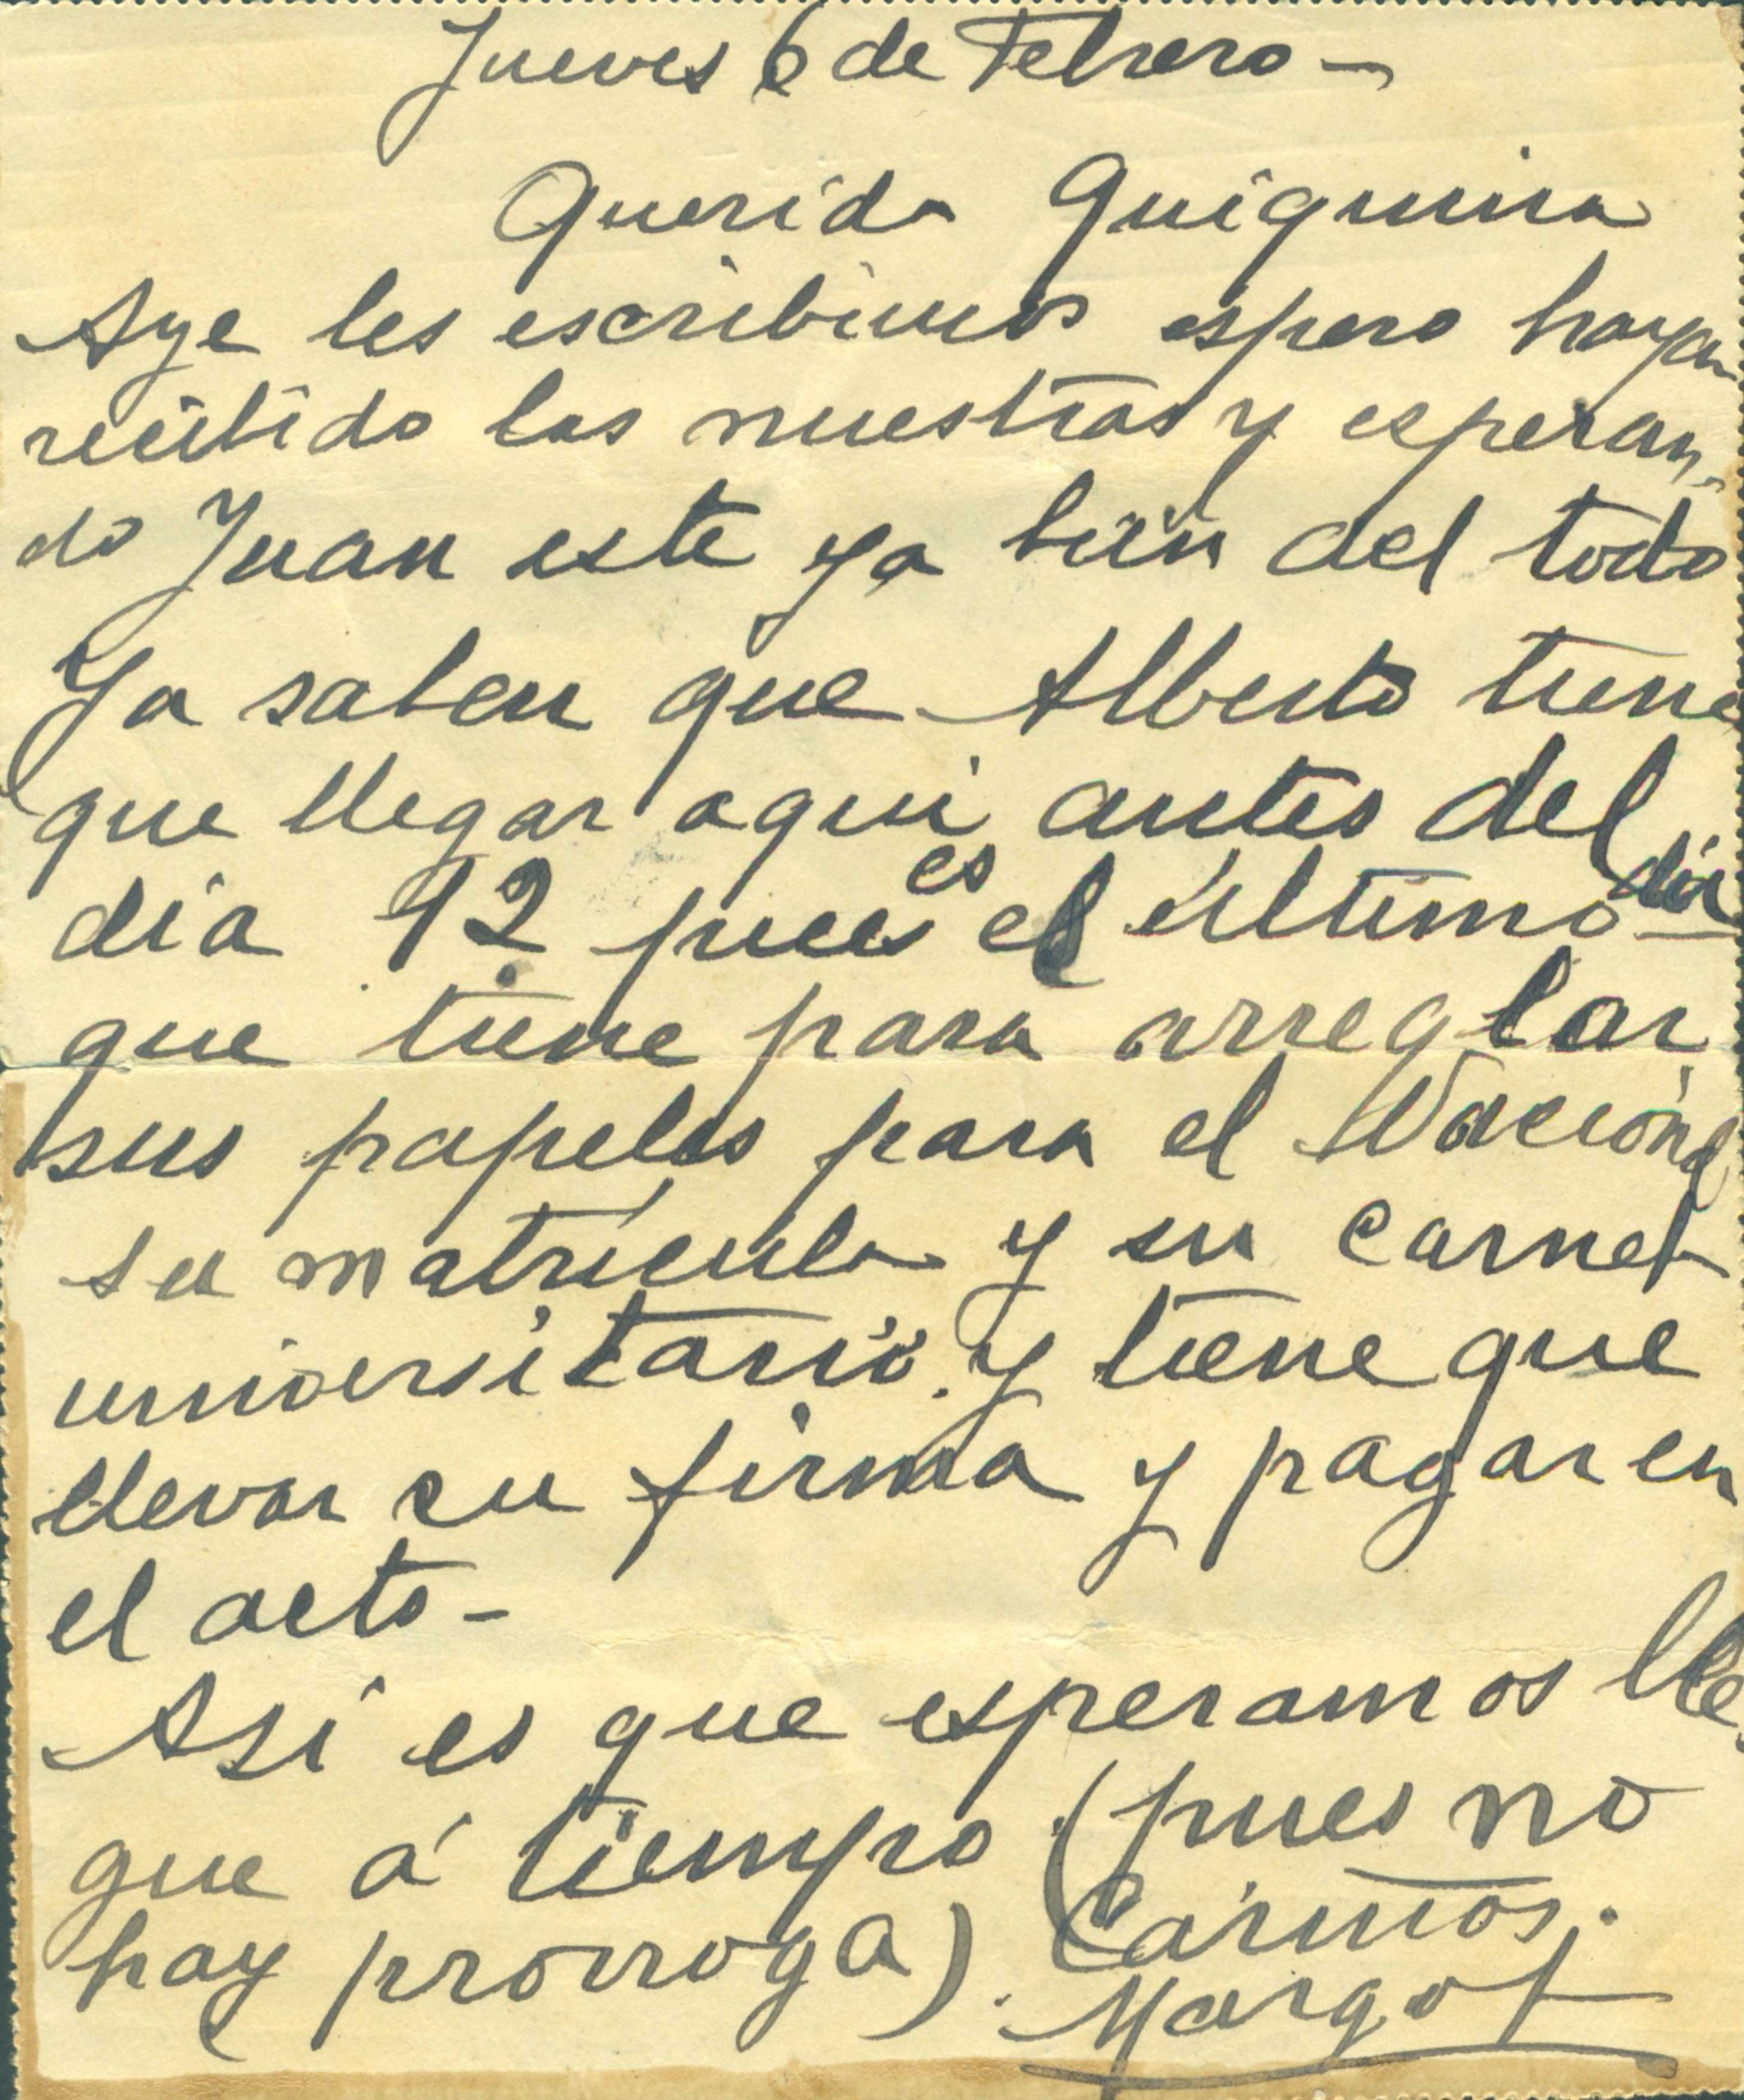 Jueves 6 de Febrero —
Querida Quiquina
Aye les escribimos espero hayan
recibido las nuestras y esperan-
do Juan este ya bien del todo
Ya saben que Alberto tiene
que llegar aqui antes del
dia 12 pues es el último día
que tiene para arreglar
sus papeles para el Nacional
su matrícula y su carnet
universitario. y tiene que
llevar su firma y pagar en
el acto -
Asi es que esperamos lle-
gue á tiempo (pues no
hay prorroga). Cariños.
Margot